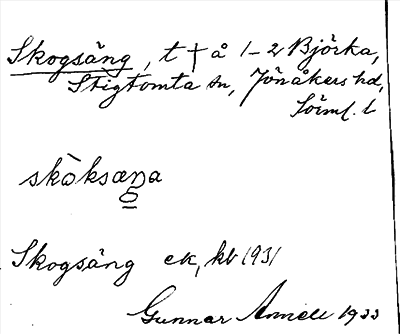 Skogsäng, t † å 1-2 Björka,
Stigtomta sn, Jönåkers hd,
Söml. l
skòksæŋa
Skogsäng ek, kb 1931
Gunnar Anneli 1933